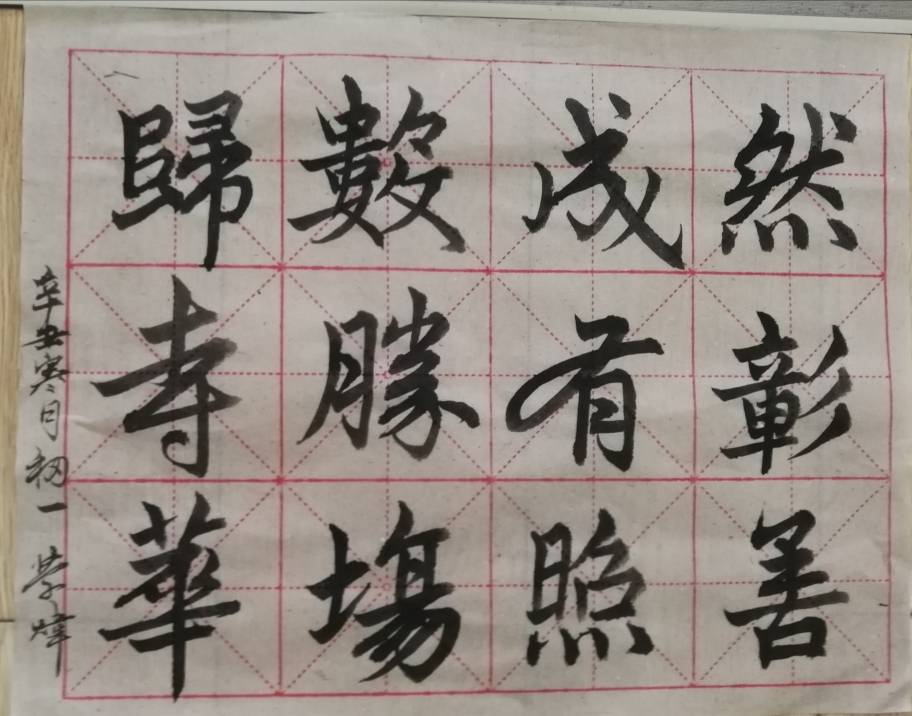 然彰善
成有照
數勝塲
歸寺華
辛丑寒月初一 学煒